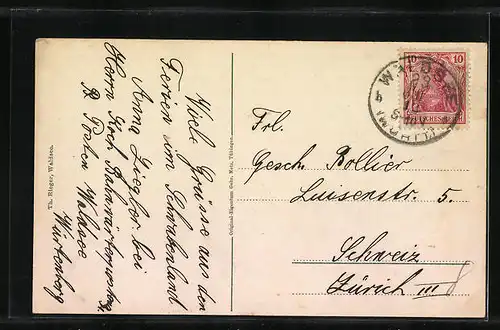 Viele Grüsse aus den
Ferien im Schwabenland
Anna Ziegler bei
Herrn Hoch. Bahnwärter
Posten Waldsee
Württenberg
Th. Rieger, Waldsee.
Original-Eigentum Gebr. Metz, Tübingen.
10 10
DEUTSCHES REICH
WALDSEE
Frl.
Gesch. Rollier
Luisenstr. 5.
Schweiz
Zürich III